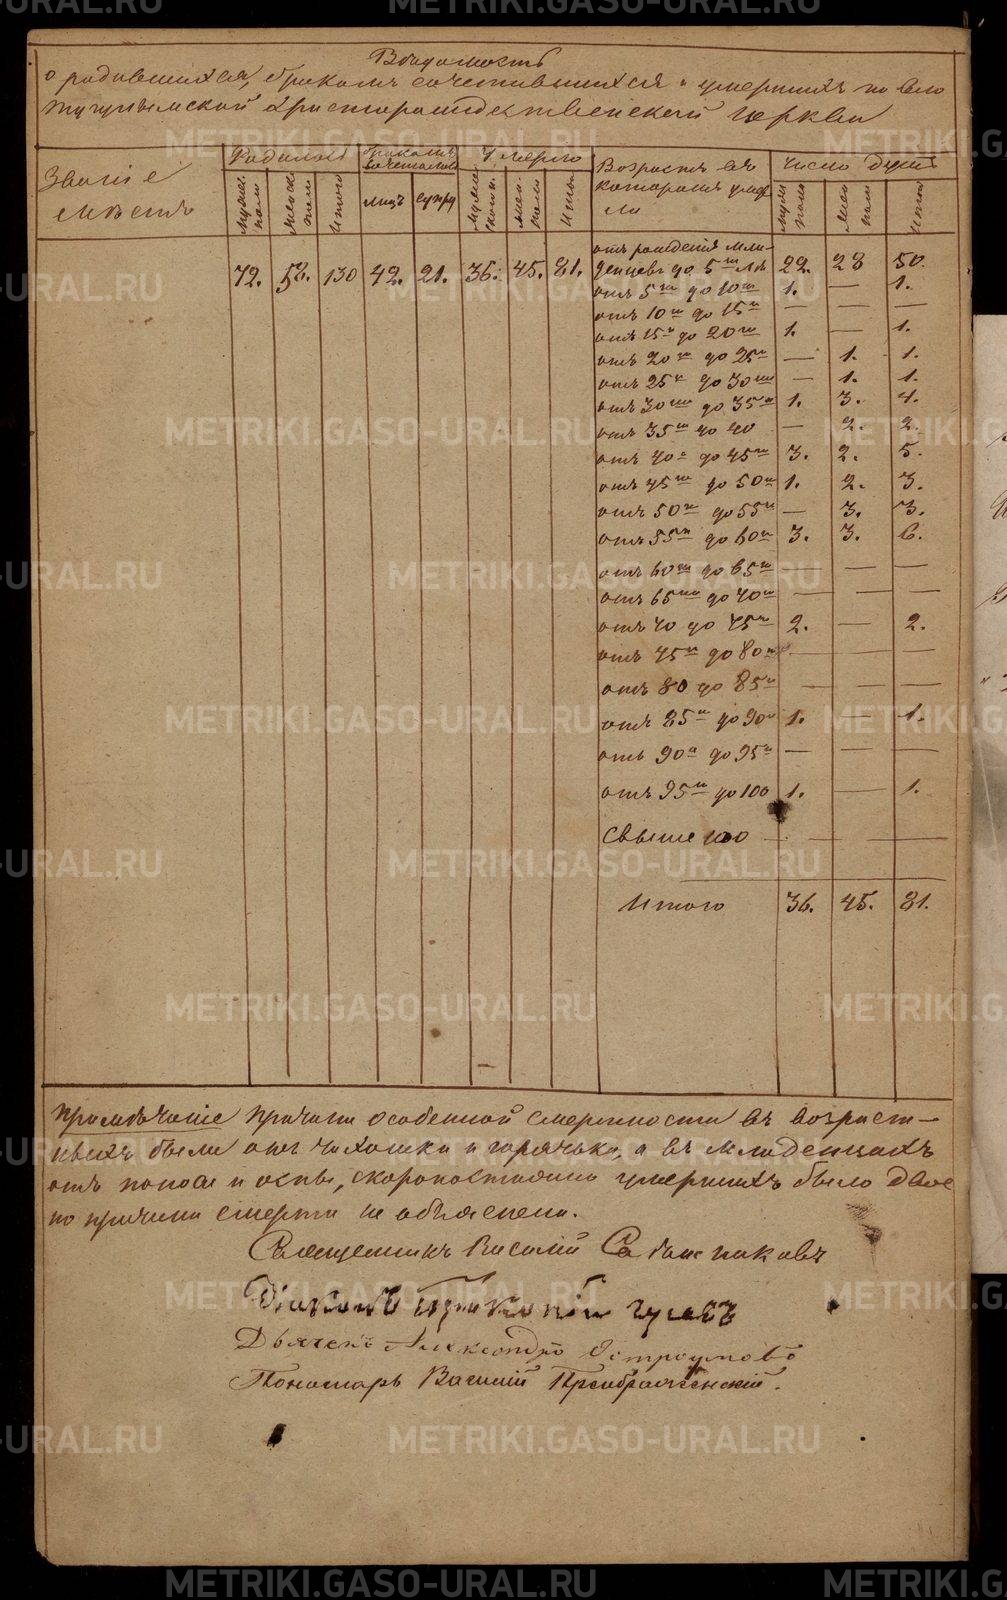 Ведомость
о родившихся, бракомъ сочетавшихся и умершихъ по село
христорождественской церкви
Званіе местъ
Родилось
Мужес. пола
Женска пола
Итого
бракомъ сочеталось
лицъ
супру
Умерло
Мужескаго
Жен. пола
Итого
Возрастъ въ которомъ умерли
Число душъ
Муж пола
Жен пола
Итого
72. 58. 130 42. 21. 36. 45. 81.
отъ рожденія мла-
денцевъ до 5ти лѣ 22. 28 50.
отъ 5ти до 10ти 1. — 1.
отъ 10ти до 15ти — — —
отъ 15ти до 20ти 1. — 1.
отъ 20ти до 25ти — 1. 1.
отъ 25ти до 30ти — 1. 1.
отъ 30ти до 35ти 1. 3. 4.
отъ 35ти до 40 — 2. 2.
отъ 40а до 45ти 3. 2. 5.
отъ 45ти до 50ти 1. 2. 3.
отъ 50ти до 55ти — 3. 3.
отъ 55ти до 60ти 3. 3. 6.
отъ 60ти до 65ти — — —
отъ 65ти до 70ти — — —
отъ 70 до 75ти 2. — 2.
отъ 75ти до 80ти — — —
отъ 80 до 85ти — — —
отъ 85ти до 90 1. — 1.
отъ 90а до 95ти — — —
отъ 95ти до 100 1. — 1.
Свыше 100 — — —
Итого 36. 45. 81.
Примѣчаніе Причины особенной смертности въ возраст—
ныхъ были отъ чахотки и горячьки, а въ младенцахъ
отъ поноса и оспы, скоропостижно умершихъ было двое
но причины смерти не объяснены.
Священникъ Василій
Діаконъ Гусевъ
Дьячекъ Александръ Остроумовъ
Пономарь Василій Преображенскій.
METRIKI.GASO-URAL.RU